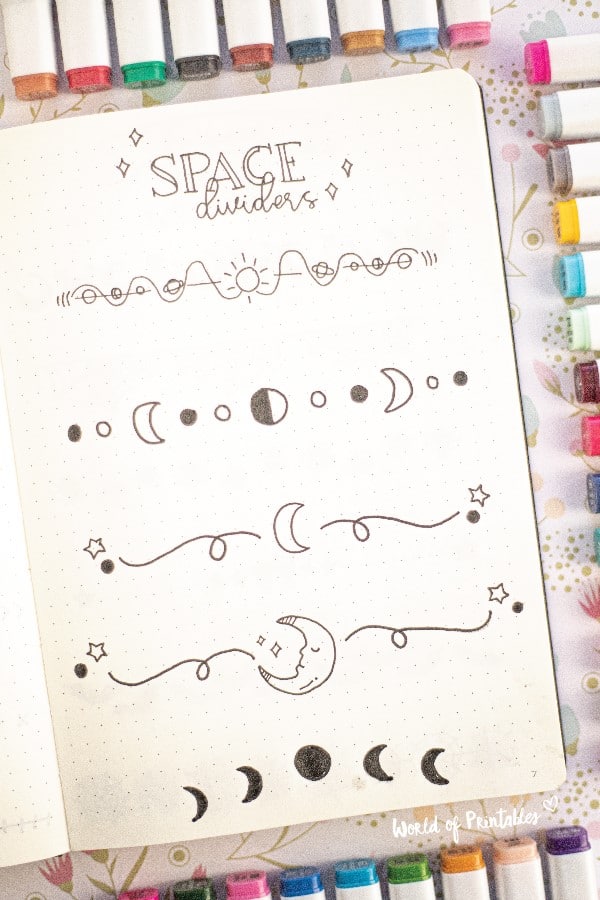 SPACE
dividers
7
World of Printables